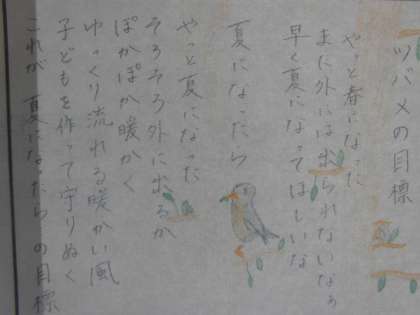 ツバメの目標
やっと春になった
まだ外には出られないなぁ
早く夏になってほしいな
夏になったら
やっと夏になった
そろそろ外に出るか
ぽかぽか暖かく
ゆっくり流れる暖かい風
子どもを作って守りぬく
これが 夏になったら の目標